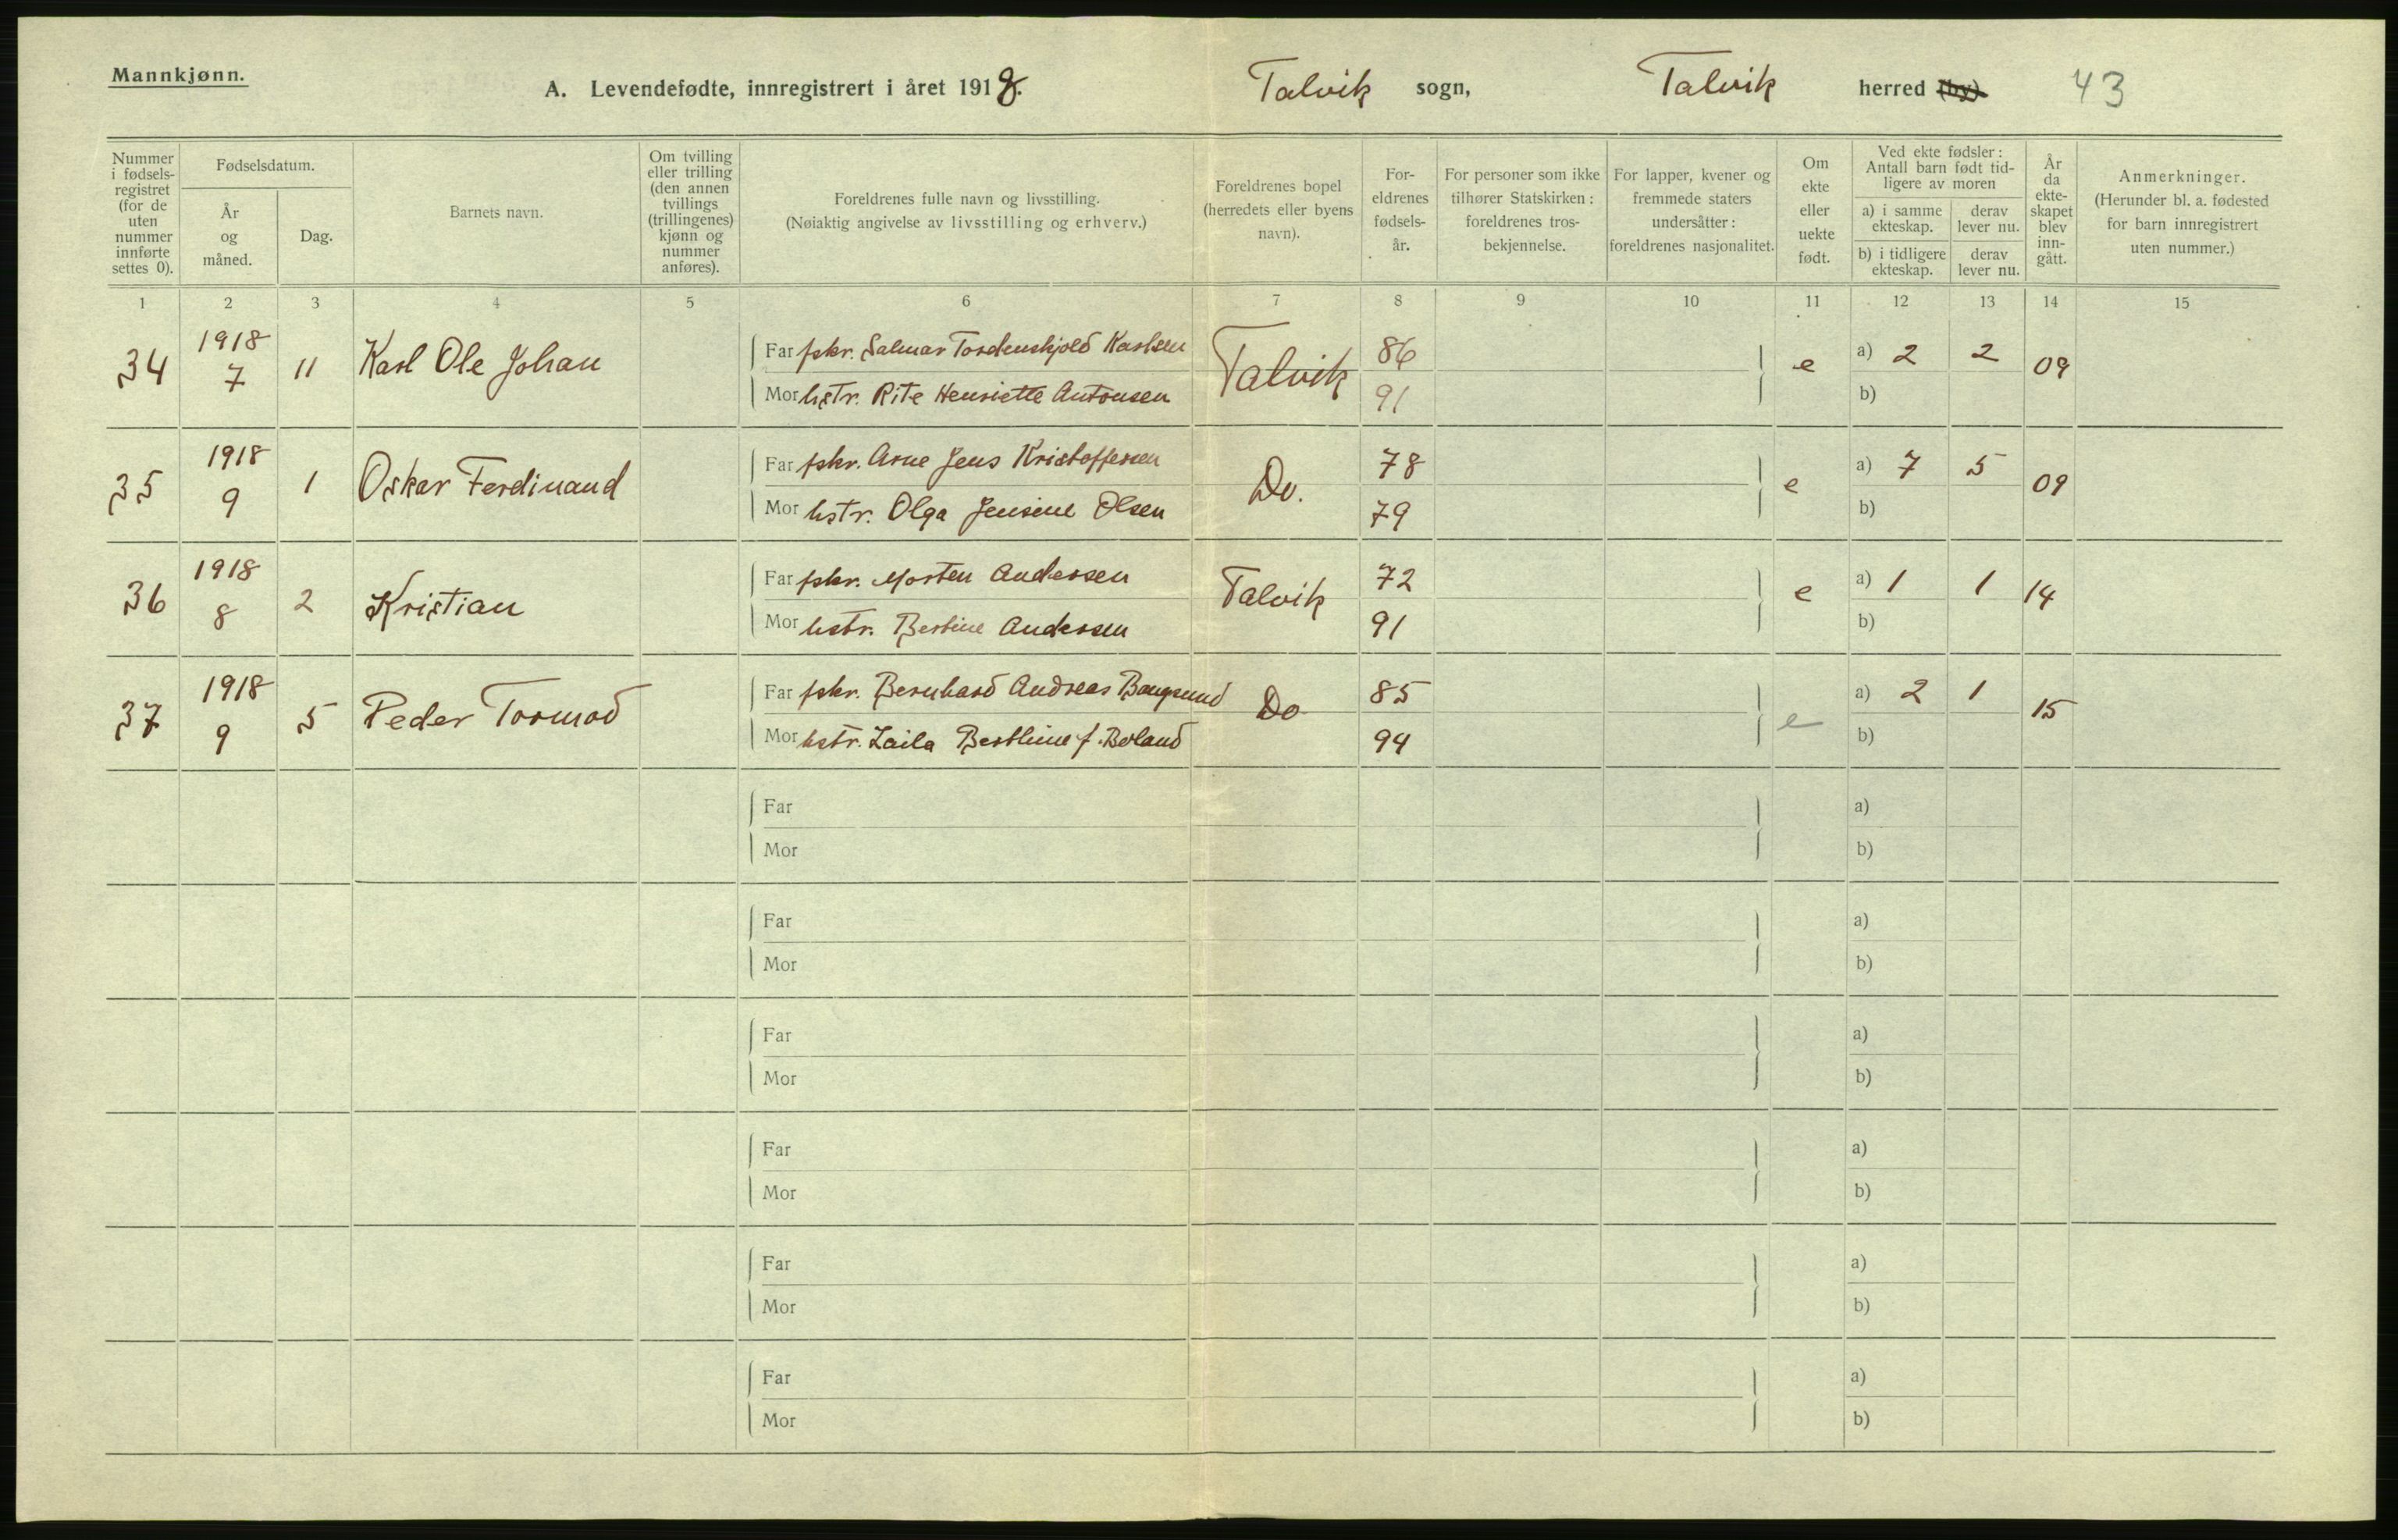 Mannkjønn.
A. Levendefødte, innregistrert i året 1918. Talvik sogn, Talvik herred (by) 43
Nummer i fødsels-registret (for de uten nummer innførte settes 0).
Fødselsdatum.
År og måned.
Dag.
Barnets navn.
Om tvilling eller trilling (den annen tvillings (trillingenes) kjønn og nummer anføres).
Foreldrenes fulle navn og livsstilling.
(Nøiaktig angivelse av livsstilling og erhverv.)
Foreldrenes bopel (herredets eller byens navn).
For-eldrenes fødsels-år.
For personer som ikke tilhører Statskirken: foreldrenes tros-bekjennelse.
For lapper, kvener og fremmede staters undersåtter: foreldrenes nasjonalitet.
Om ekte eller uekte født.
Ved ekte fødsler: Antall barn født tid-ligere av moren
a) i samme ekteskap.
derav lever nu.
b) i tidligere ekteskap.
derav lever nu.
År da ekte-skapet blev inn-gått.
Anmerkninger.
(Herunder bl. a. fødested for barn innregistrert uten nummer.)
1 2 3 4 5 6 7 8 9 10 11 12 13 14 15
34 1918 7 11 Karl Ole Johan
Far fskr. Salmar Tordenskjold Karlsen Talvik 86 e a) 2 2 09
Mor hstr. Rite Henriette Antonsen 91 b)
35 1918 9 1 Oskar Ferdinand
Far fskr. Arne Jens Kristoffersen Do. 78 e a) 7 5 09
Mor hstr. Olga Jensine Olsen 79 b)
36 1918 8 2 Kristian
Far fskr. Morten Anderssen Talvik 72 e a) 1 1 14
Mor hstr. Bertine Anderssen 91 b)
37 1918 9 5 Peder Tormod
Far fskr. Bernhard Andreas Do 85 e a) 2 1 15
Mor hstr. Laila Berthine f. 94 b)
Far a)
Mor b)
Far a)
Mor b)
Far a)
Mor b)
Far a)
Mor b)
Far a)
Mor b)
Far a)
Mor b)